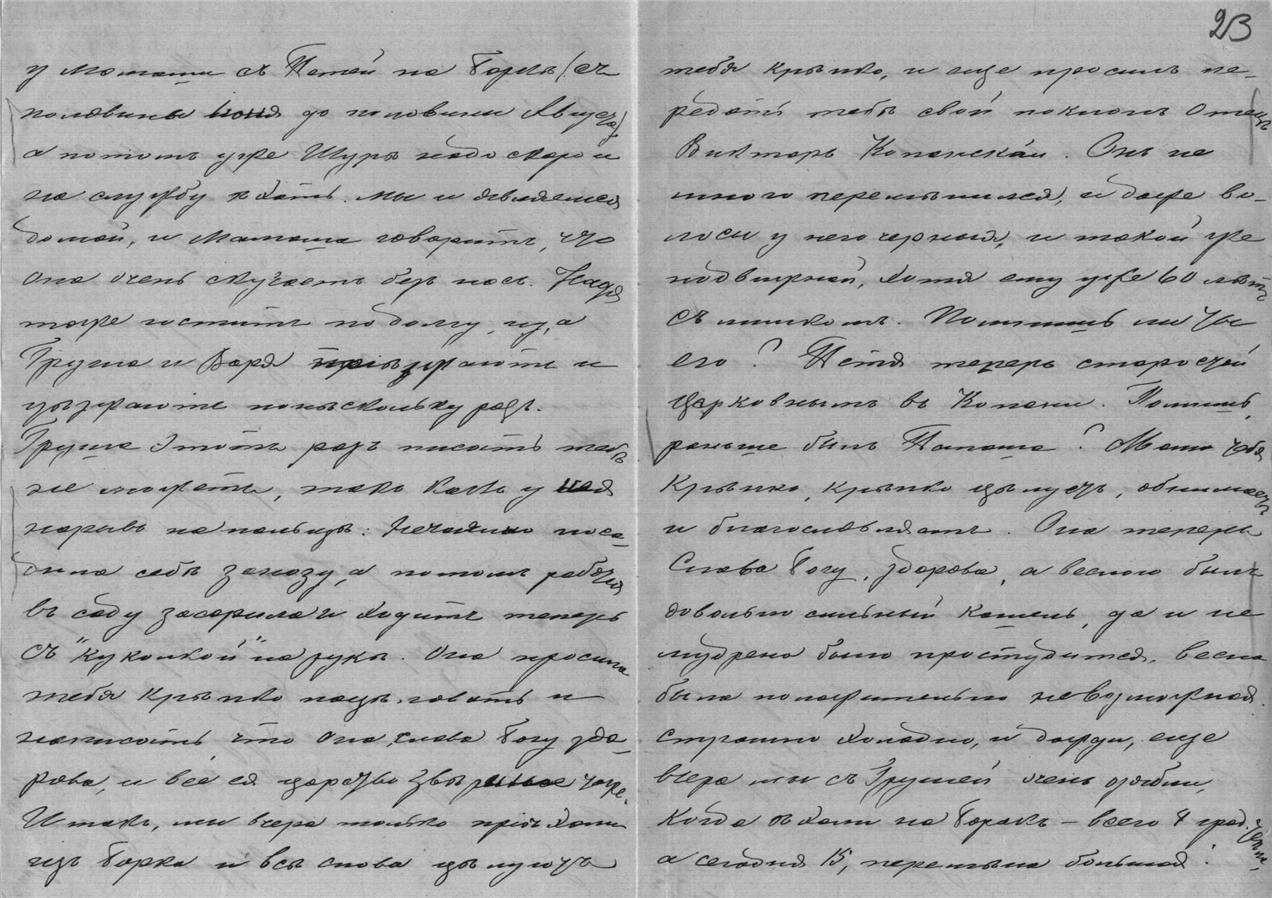 23
у Мамаши съ Петей на Боркѣ /съ
половины Іюня до половины Авгус/та/
а потомъ уже Шурѣ надо скоро и
на службу ѣхать. мы и являемся
домой, и Мамаша говоритъ, что
она очень скучаетъ безъ насъ. Надя
тоже гоститъ по долгу, ну, а
Груша и Варя пріѣзжаютъ и
уѣзжаютъ понѣскольку разъ.
Груша этотъ разъ писать тебѣ
не можетъ, такъ какъ у нея
нарывъ на пальцѣ: Нечаянно поса-
дила себѣ занозу, а потомъ работая
въ саду засорила и ходитъ теперь
съ "куколкой" на рукѣ. Она просила
тебя крѣпко поцѣловать и
написать что она, слава Богу здо-
рова, и всё ея царство звѣриное тоже.
Итакъ, мы вчера только пріѣхали
изъ Борка и всѣ снова цѣлуютъ
тебя крѣпко, и еще просилъ пе-
редать тебѣ свой поклонъ Отецъ
Викторъ Копанскій. Онъ не
много перемѣнился, и даже во-
лосы у него черныя, и такой же
подвижной, хотя ему уже 60 лѣтъ
съ лишкомъ. Помнишь ли ты
его? Петя теперь старостой
Церковнымъ въ Копани. Помнишь,
раньше былъ Папаша? Мама тебя
крѣпко, крѣпко цѣлуетъ, обнимаетъ
и благословляетъ. Она теперь
Слава Богу, здорова, а весною былъ
довольно сильный кашель, да и не
мудрено было простудится, весна
была положительно невозможная.
страшно холодно, и дожди, еще
вчера мы съ Грушей очень озябли,
Когда ѣхали на Боракъ – всего 4 град.
а сегодня 15, перемѣна большая.